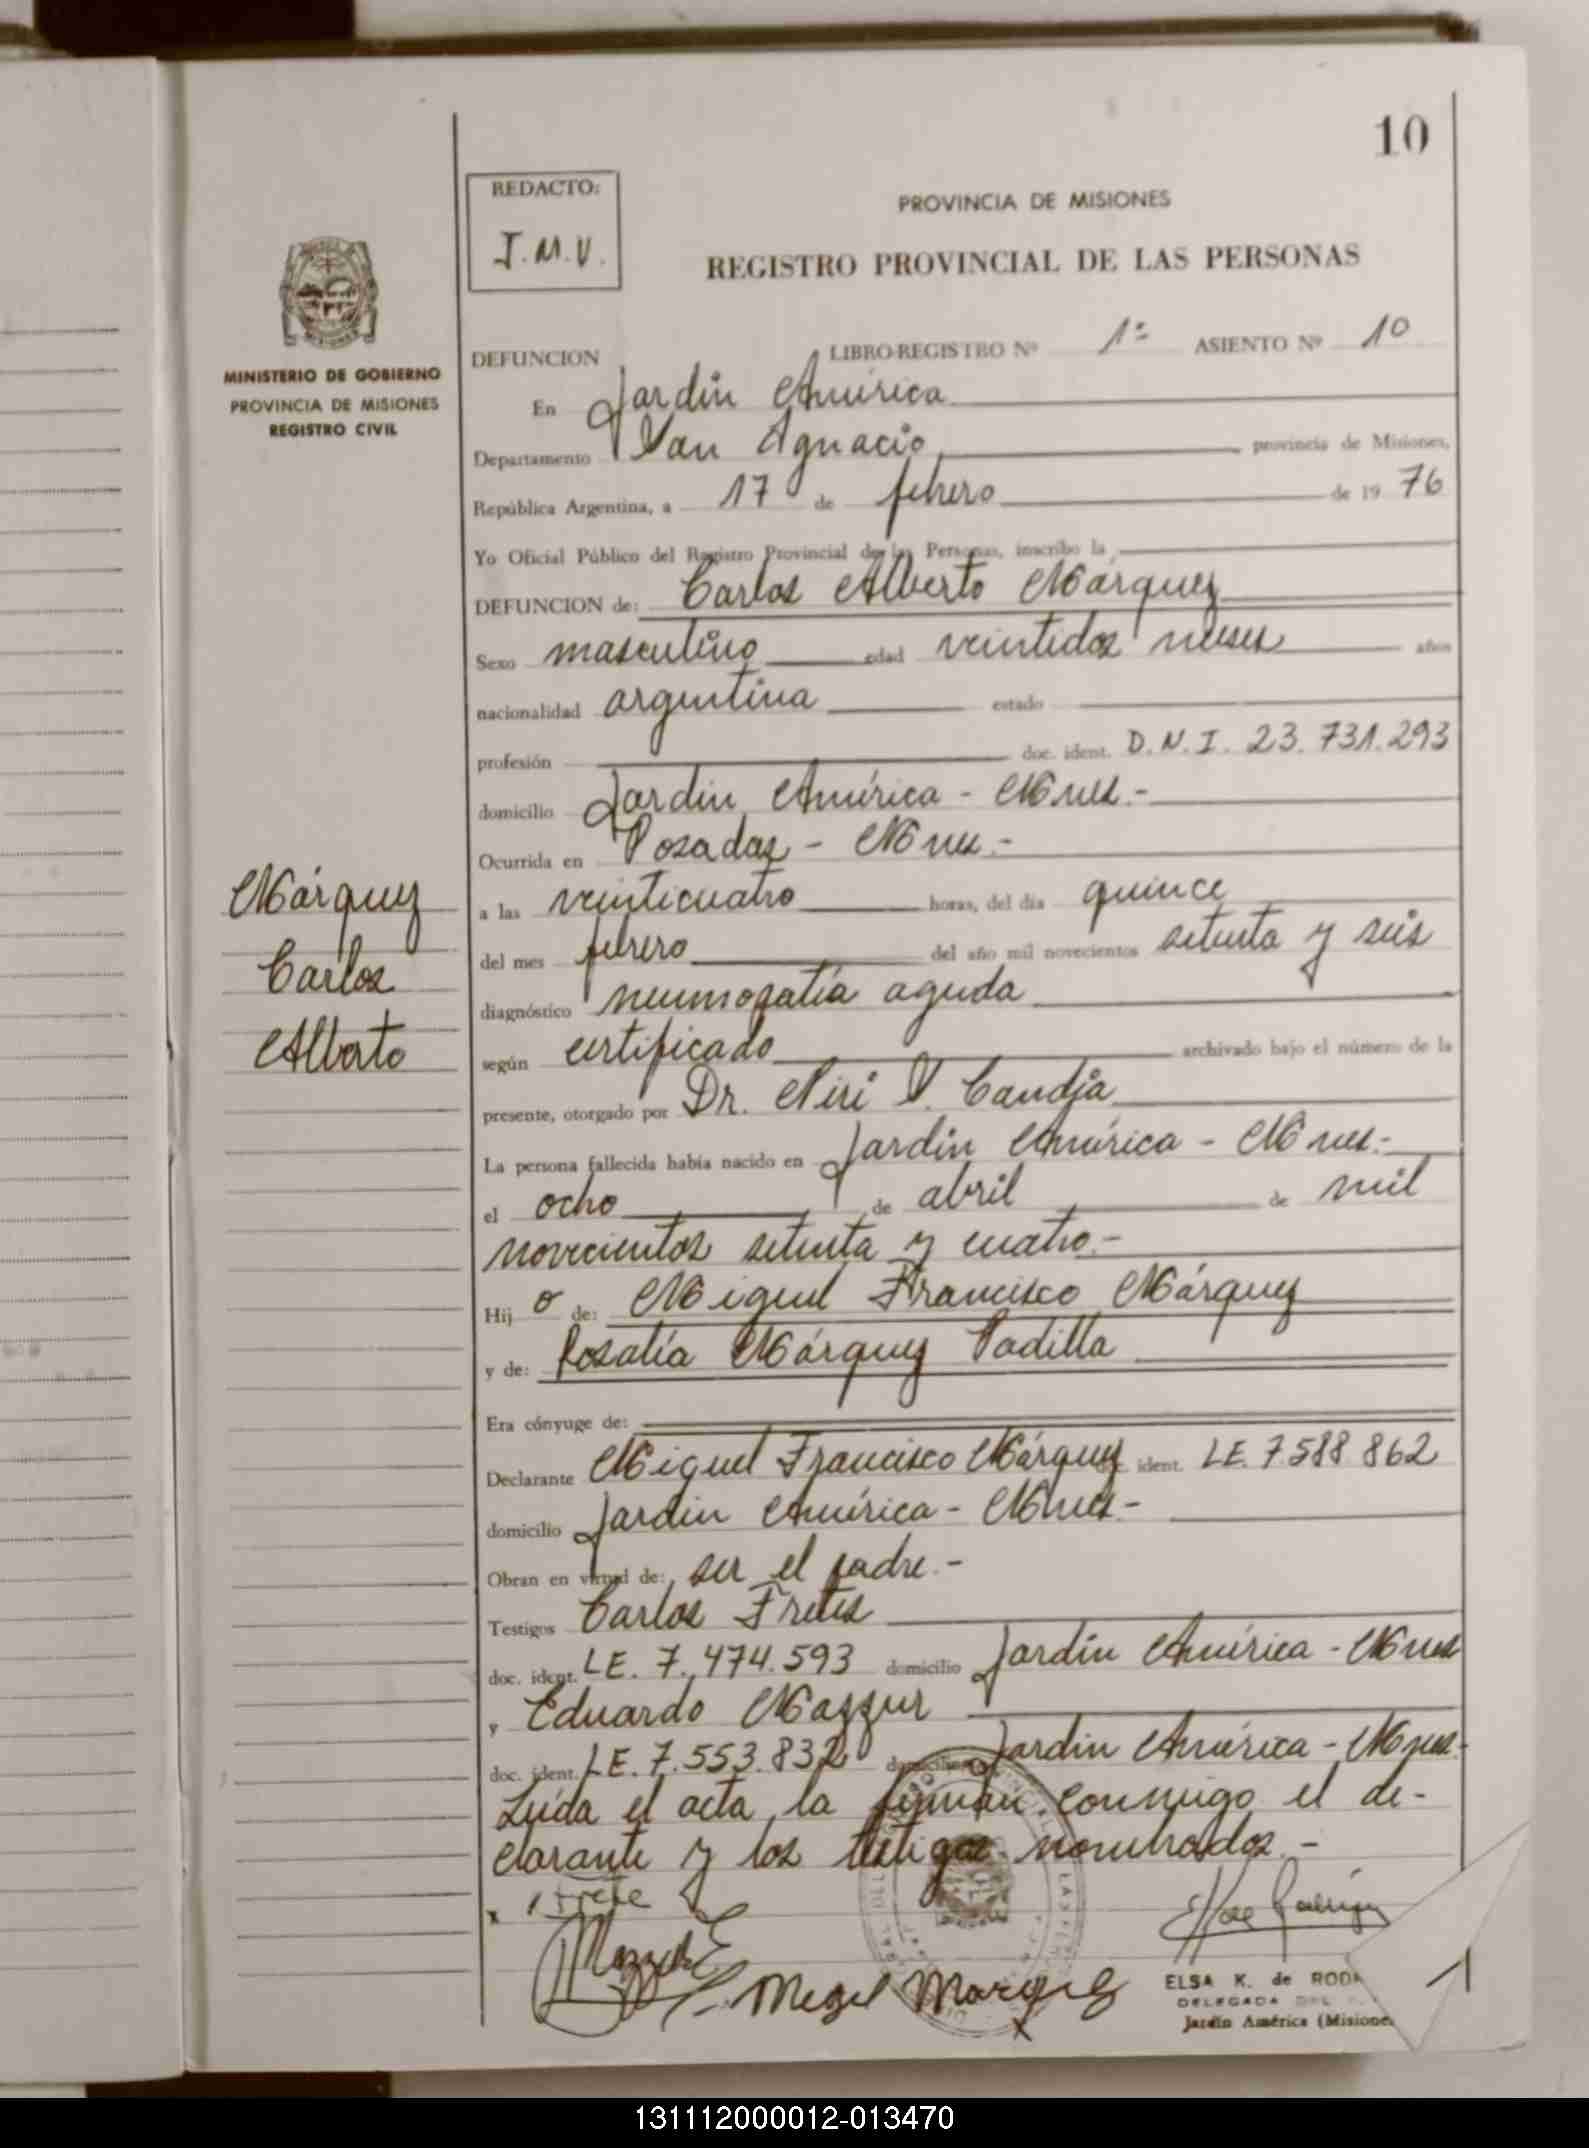 10
REDACTO:
J.M.V.
PROVINCIA DE MISIONES
REGISTRO PROVINCIAL DE LAS PERSONAS
MINISTERIO DE GOBIERNO
PROVINCIA DE MISIONES
REGISTRO CIVIL
DEFUNCION LIBRO-REGISTRO Nº 1º ASIENTO Nº 10
En Jardín América
Departamento San Ignacio, provincia de Misiones,
República Argentina, a 17 de febrero de 1976
Yo Oficial Público del Registro Provincial de las Personas, inscribo la
DEFUNCION de: Carlos Alberto Márquez
Sexo masculino edad veintidos meses años
nacionalidad argentina estado
profesión doc. ident. D.N.I. 23.731.293
domicilio Jardín América - Mnes.-
Ocurrida en Posadas - Mnes.-
a las veinticuatro horas, del día quince
del mes febrero del año mil novecientos setenta y seis
diagnóstico neumopatía aguda
según certificado archivado bajo el número de la
presente, otorgado por Dr. Niri V. Candja
La persona fallecida había nacido en Jardín América - Mnes.-
el ocho de abril de mil
novecientos setenta y cuatro.-
Hijo de: Miguel Francisco Márquez
y de: Rosalía Márquez Padilla
Era cónyuge de:
Declarante Miguel Francisco Márquez ident. LE. 7.588.862
domicilio Jardín América - Mnes.-
Obran en virtud de: ser el padre.-
Testigos Carlos Fretes
doc. ident. LE. 7.474.593 domicilio Jardín América - Mnes
y Eduardo Mazzur
doc. ident. LE. 7.553.832 domicilio Jardín América - Mnes.-
Leída el acta, la firman conmigo el de-
clarante y los testigos nombrados.-
Márquez
Carlos
Alberto
x Frete
Mazzur E
Megel Marques
x
ELSA K. de ROD
DELEGADA DEL
Jardín América (Misione
1
131112000012-013470